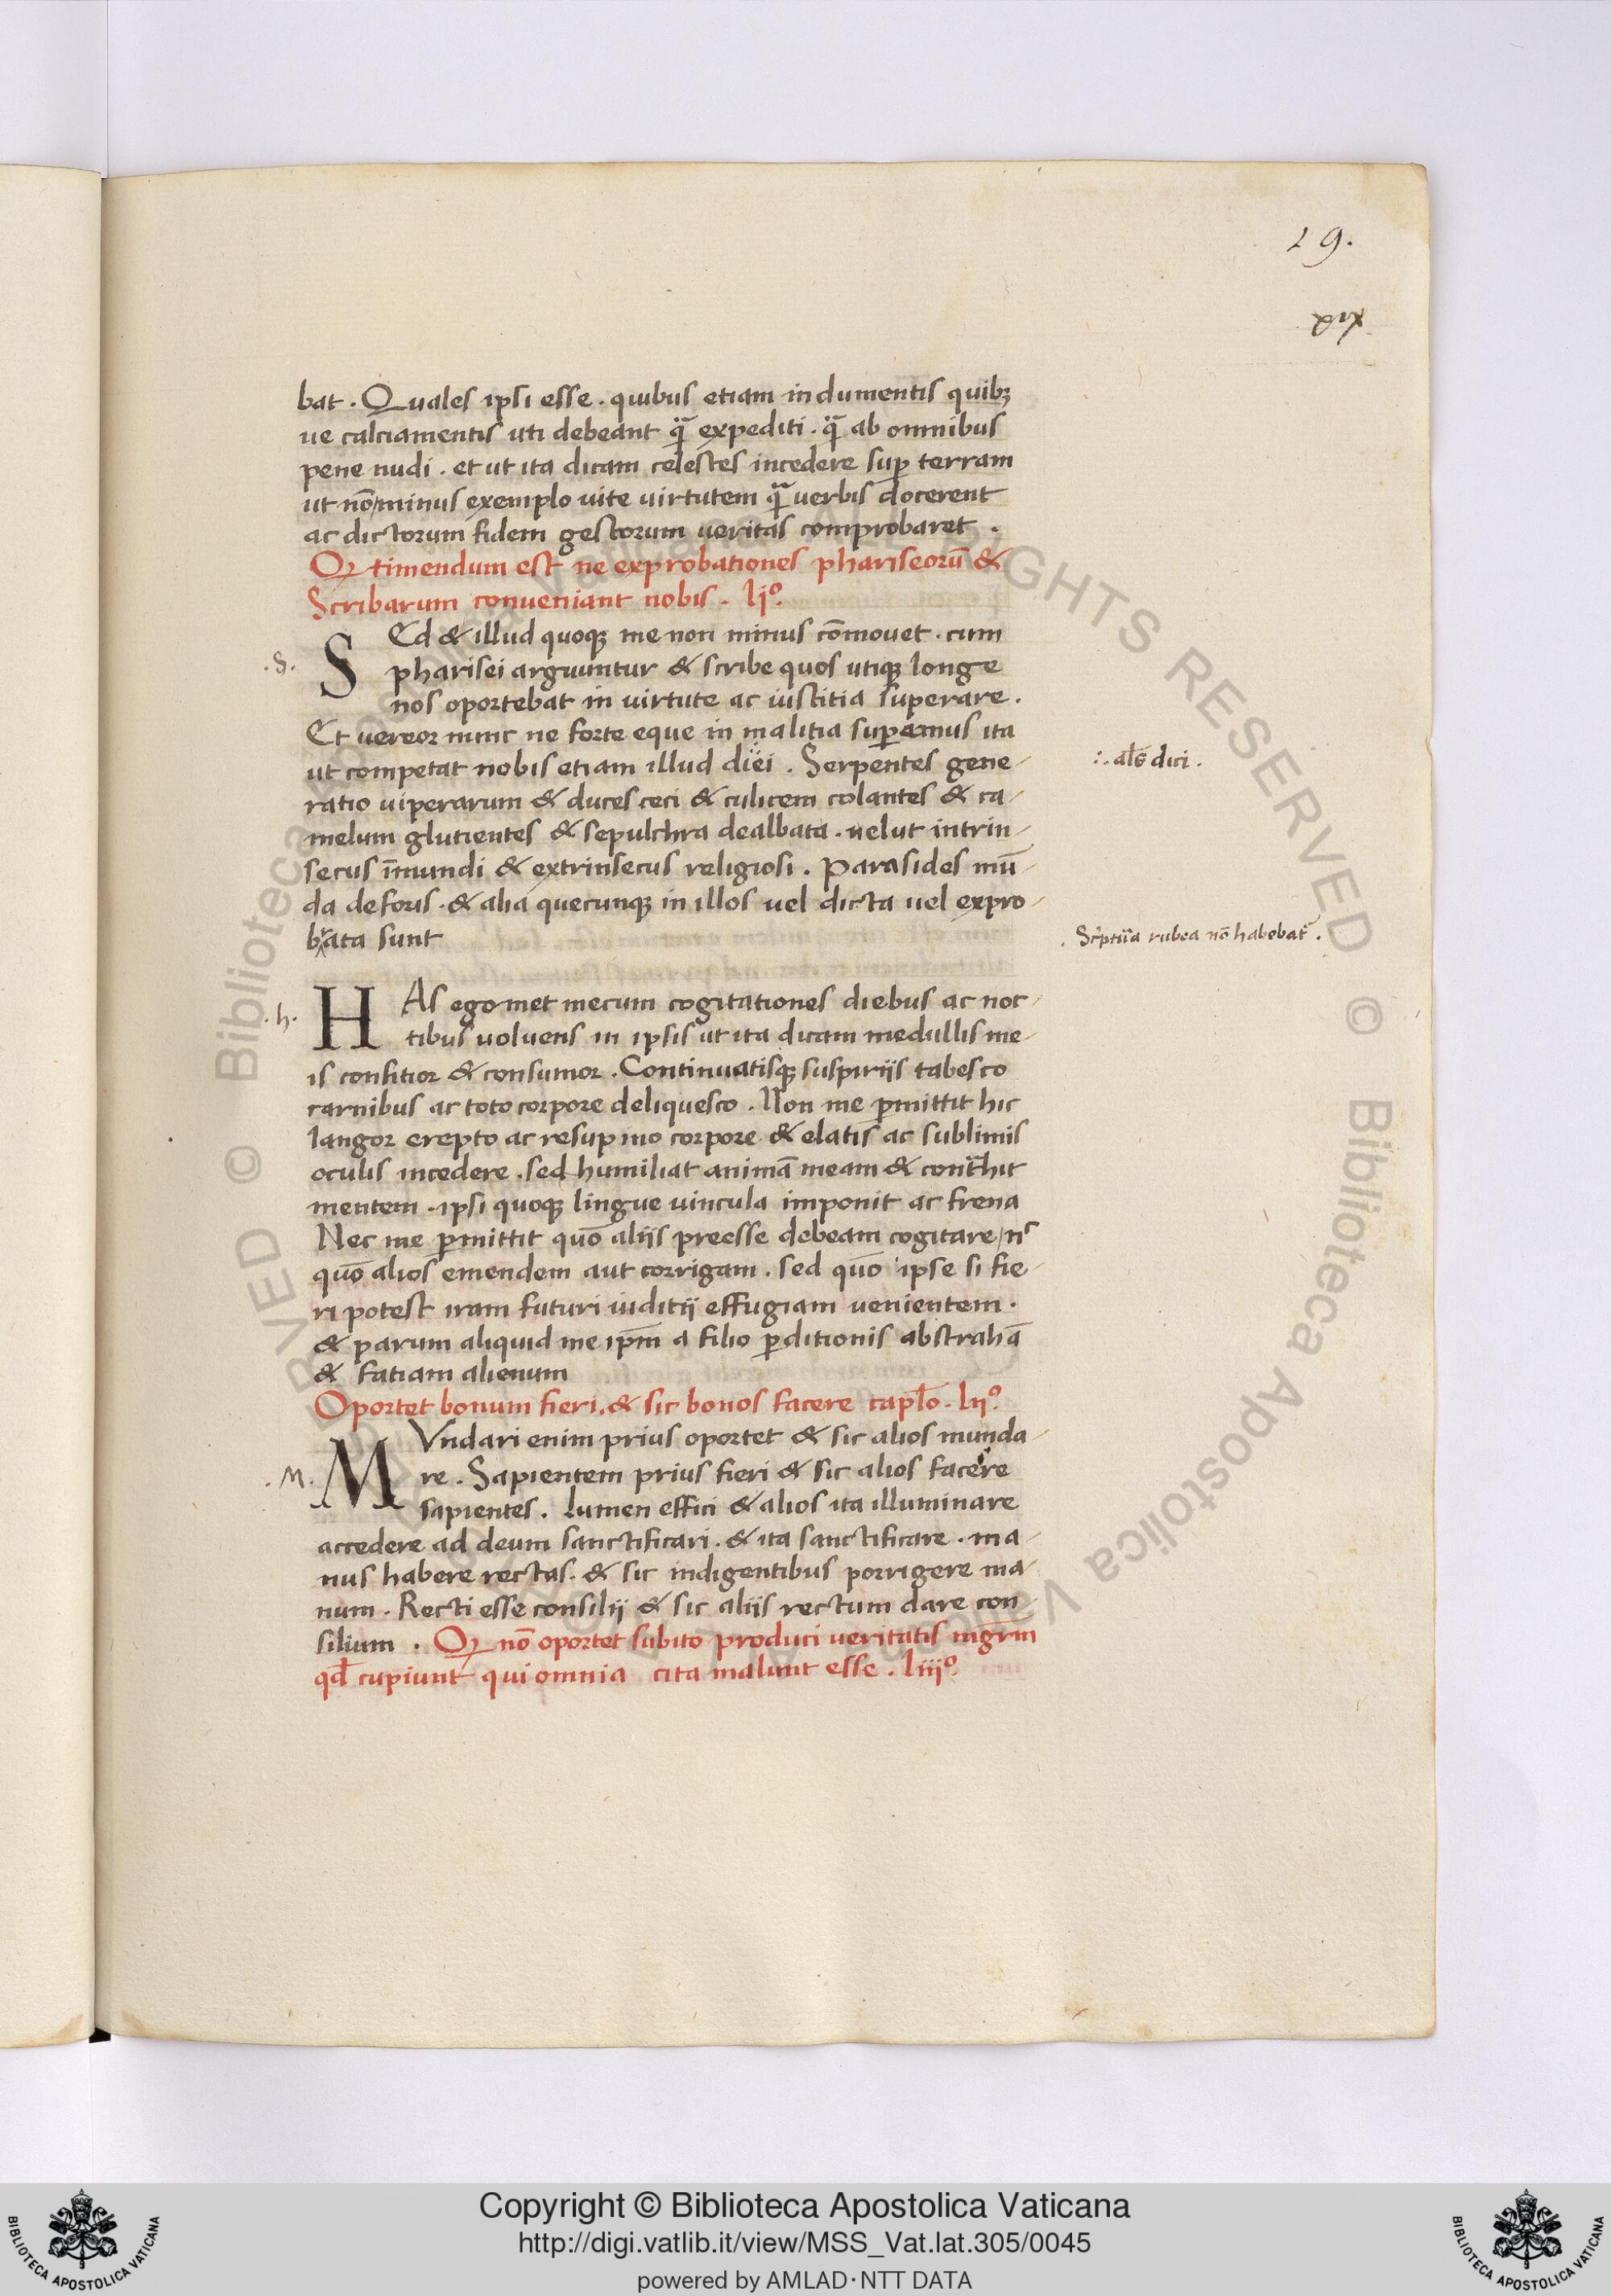 19.
xix
bat. Quales ipsi esse. quibus etiam indumentis quibꝫ
ue calciamentis uti debeant q̃ expediti. q̃ ab omnibus
pene nudi. et ut ita dicam celestes incedere suꝑ terram
ut nō minus exemplo uite uirtutem q̃ uerbis docerent
ac dictorum fidem gestorum ueritas comprobaret.
Qꝫ timendum est ne exprobationes phariseorū &
Scribarum conueniant nobis. ljº.
.S. SEd & illud quoqꝫ me non minus cōmouet. cum
pharisei arguuntur & scribe quos utiqꝫ longe
nos oportebat in uirtute ac iustitia superare.
Et uereor nunc ne forte eque in malitia suꝑamus ita
ut competat nobis etiam illud diei. Serpentes gene-
∴ als̄ dici.
ratio uiperarum & duces ceci & culicem colantes & ca-
melum glutientes & sepulchra dealbata. uelut intrin-
secus īmundi & extrinsecus religiosi. Parasides mū-
da deforis. & alia quecunqꝫ in illos uel dicta uel expro-
brata sunt
Sc̓ptu̓a rubea nō habebat̓.
.h. HAs egomet mecum cogitationes diebus ac noc-
tibus uoluens in ipsis ut ita dicam medullis me-
is conficior & consumor. Continuatisqꝫ suspirijs tabesco
carnibus ac toto corpore deliquesco. Non me ꝑmittit hic
langor erepto ac resupino corpore & elatis ac sublimis
oculis incedere. sed humiliat animā meam & cont̓hit
mentem. ipsi quoqꝫ lingue uincula imponit ac frena
Nec me ꝑmittit quō alijs preesse debeam cogitare/
quō alios emendem aut corrigam. sed quō ipse si fie-
ri potest iram futuri iuditij effugiam uenientem.
& parum aliquid me ip̄m a filio ꝑditionis abstrahā
& fatiam alienum
Oportet bonum fieri. & sic bonos facere capl̄o. lijº.
.M. MVndari enim prius oportet & sic alios munda-
re. Sapientem prius fieri & sic alios facere
sapientes. Lumen effici & alios ita illuminare
accedere ad deum sanctificari. & ita sanctificare. ma-
nus habere rectas. & sic indigentibus porrigere ma-
num. Recti esse consilij & sic alijs rectum dare con-
silium. Qꝫ nō oportet subito produci ueritatis mgr̄m
qd̄ cupiunt qui omnia cita malunt esse. liijº.
Copyright © Biblioteca Apostolica Vaticana
http://digi.vatlib.it/view/MSS_Vat.lat.305/0045
powered by AMLAD·NTT DATA